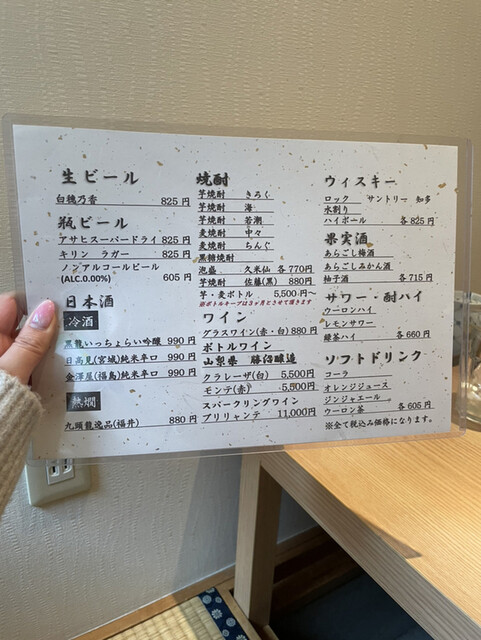 生ビール
白穂乃香 825円
瓶ビール
アサヒスーパードライ 825円
キリン ラガー 825円
ノンアルコールビール
(ALC.0.00%) 605円
日本酒
冷酒
黒龍いっちょらい吟醸 990円
日高見(宮城)純米辛口 990円
金澤屋(福島)純米辛口 990円
熱燗
九頭龍逸品(福井) 880円
焼酎
芋焼酎 きろく
芋焼酎 海
芋焼酎 若潮
麦焼酎 中々
麦焼酎 ちんぐ
黒糖焼酎
泡盛 久米仙 各770円
芋焼酎 佐藤(黒) 880円
芋・麦ボトル 5,500円~
※ボトルキープは3ヶ月とさせて頂きます
ワイン
グラスワイン(赤・白)880円
ボトルワイン
山梨県 勝沼醸造
クラレーザ(白) 5,500円
モンテ(赤) 5,500円
スパークリングワイン
ブリリャンテ 11,000円
ウィスキー
ロック サントリー 知多
水割り
ハイボール 各825円
果実酒
あらごし梅酒
あらごしみかん酒
柚子酒 各715円
サワー・酎ハイ
ウーロンハイ
レモンサワー
緑茶ハイ 各660円
ソフトドリンク
コーラ
オレンジジュース
ジンジャエール
ウーロン茶 各605円
※全て税込み価格になります。